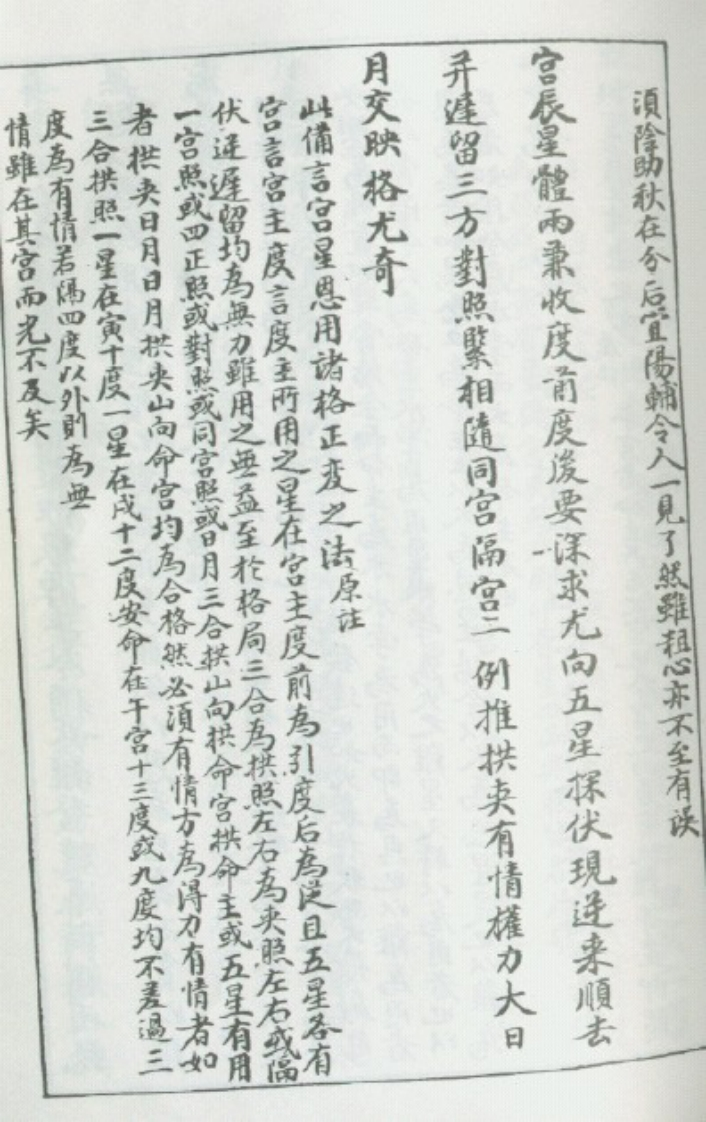 須陰助秋在分后宜陽輔令人一見了然雖粗心亦不至有误
宫辰星體兩兼收度前度後要深求尤向五星探伏現逆来順去
并遲留三方對照緊相隨同宫隔宫二例推拱夹有情權力大日
月交映格尤奇
此備言宫星恩用諸格正变之法原註
宫言宫主度言度主所用之星在宫主度前為引度后為從且五星各有
伏逆遲留均為無力雖用之無益至於格局三合為拱照左右為夹照左右或隔
一宫照或四正照或對照或同宫照或日月三合拱山向拱命宫拱命主或五星有用
者拱夹日月日月拱夹山向命宫均為合格然必須有情方為得力有情者如
三合拱照一星在寅十度一星在戌十二度安命在午宫十三度或九度均不差過三
度為有情若隔四度以外則為無
情雖在其宫而光不及矣